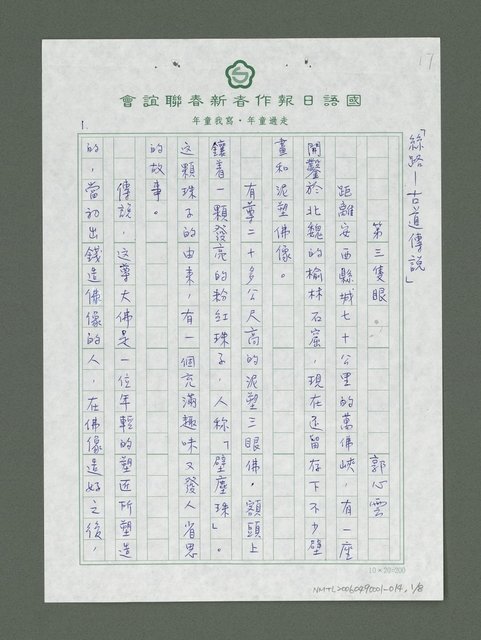 17
會誼聯春新春者作報日語國
年童我寫・年童過走
1.
「絲路—古道傳說」
第三隻眼
郭心雲
距離安西縣城七十公里的萬佛峽，有一座
開鑿於北魏的榆林石窟，現在還留存下不少壁
畫和泥塑佛像。
有尊二十多公尺高的泥塑三眼佛，額頭上
鑲着一顆發亮的粉紅珠子，人稱「壁塵珠」。
這顆珠子的由來，有一個充滿趣味又發人省思
的故事。
傳說，這尊大佛是一位年輕的塑匠所塑造
的，當初出錢造佛像的人，在佛像造好之後，
10×20=200
NMTL20060490001-014, 1/8